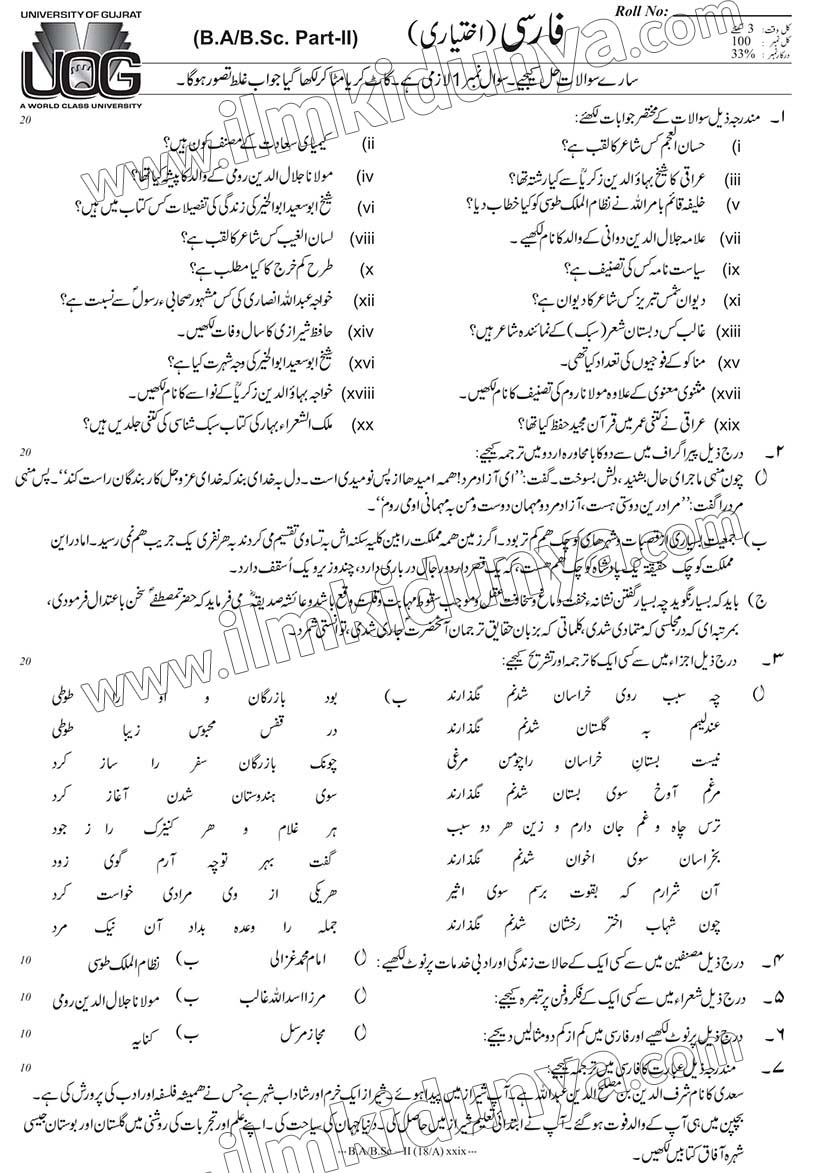 UNIVERSITY OF GUJRAT
UOG
A WORLD CLASS UNIVERSITY
(B.A/B.Sc. Part-II)
فارسی (اختیاری)
Roll No:
کل وقت: 3 گھنٹے
کل نمبر: 100
درکار نمبر: 33%
سارے سوالات حل کیجیے۔ سوال نمبر 1 لازمی ہے۔ کاٹ کر یا مٹا کر لکھا گیا جواب غلط تصور ہوگا۔
۱۔ مندرجہ ذیل سوالات کے مختصر جوابات لکھئے: 20
(i حسان العجم کس شاعر کا لقب ہے؟
(ii کیمیای سعادت کے مصنف کون ہیں؟
(iii عراقی کا شیخ بہاؤ الدین زکریاؒ سے کیا رشتہ تھا؟
(iv مولانا جلال الدین رومی کے والد کا پیشہ کیا تھا؟
(v خلیفہ قائم بامر اللہ نے نظام الملک طوسی کو کیا خطاب دیا؟
(vi شیخ ابو سعید ابوالخیر کی زندگی کی تفصیلات کس کتاب میں ہیں؟
(vii علامہ جلال الدین دوانی کے والد کا نام لکھیے۔
(viii لسان الغیب کس شاعر کا لقب ہے؟
(ix سیاست نامہ کس کی تصنیف ہے؟
(x طرح کم خرج کا کیا مطلب ہے؟
(xi دیوان شمس تبریز کس شاعر کا دیوان ہے؟
(xii خواجہ عبداللہ انصاری کی کس مشہور صحابیء رسولؐ سے نسبت ہے؟
(xiii غالب کس دبستان شعر (سبک) کے نمائندہ شاعر ہیں؟
(xiv حافظ شیرازی کا سال وفات لکھیں۔
(xv مناکو کے فوجیوں کی تعداد کیا تھی۔
(xvi شیخ ابو سعید ابوالخیر کی وجہ شہرت کیا ہے؟
(xvii مثنوی معنوی کے علاوہ مولانا روم کی تصنیف کا نام لکھیں۔
(xviii خواجہ بہاؤ الدین زکریاؒ کے نواسے کا نام لکھیں۔
(xix عراقی نے کتنی عمر میں قرآن مجید حفظ کیا تھا؟
(xx ملک الشعراء بہار کی کتاب سبک شناسی کی کتنی جلدیں ہیں؟
۲۔ درج ذیل پیرا گراف میں سے دو کا با محاورہ اردو میں ترجمہ کیجیے: 20
ا) چون منہی ماجرای حال بشنید، دلش بسوخت۔ گفت: ’’ای آزاد مرد! ھمہ امیدھا از پس نومیدی است۔ دل بہ خدای بند کہ خدای عزوجل کار بندگان راست کند‘‘۔ پس منہی
مرد را گفت: ’’مرا درین دوستی ہست، آزاد مرد و مہمان دوست و من بہ مہمانی او می روم‘‘۔
ب) جمعیت بسیاری از قصبات و شھرھای کوچک ھم کم تر بود۔ اگر زمین ھمہ مملکت را بین کلیہ سکنہ اش بہ تساوی تقسیم می کردند بہ ھر نفری یک جریب ھم نمی رسید۔ اما در این
مملکت کوچک حقیقۃ یک پادشاہ کوچک ھم ھست، کہ یک قصر دارد و رجال درباری دارد، چند وزیر و یک اُسقف دارد۔
ج) باید کہ بسیار نگوید چہ بسیار گفتن نشانہ ء خفت دماغ و سخافت عقل و موجب سقوط مہابت و قلت وقع باشد و عائشہ صدیقہؓ می فرماید کہ حضرت مصطفیؐ سخن باعتدال فرمودی،
بمرتبہ ای کہ در مجلسی کہ متمادی شدی، کلماتی کہ بزبان حقایق ترجمان آنحضرت جاری شدی، توانستی شمرد۔
۳۔ درج ذیل اجزاء میں سے کسی ایک کا ترجمہ اور تشریح کیجیے: 20
ا) چہ سبب روی خراسان شدنم نگذارند
عندلیم بہ گلستان شدنم نگذارند
نیست بستانِ خراسان را چومن مرغی
مرغم آوخ سوی بستان شدنم نگذارند
ترس جاہ و غم جان دارم و زین ھر دو سبب
بخراسان سوی اخوان شدنم نگذارند
آن شرارم کہ بقوت برسم سوی اثیر
چون شہاب اختر رخشان شدنم نگذارند
ب) بود بازرگان و او را طوطی
در قفس محبوس زیبا طوطی
چونک بازرگان سفر را ساز کرد
سوی ہندوستان شدن آغاز کرد
ہر غلام و ھر کنیزک را ز جود
گفت بہر تو چہ آرم گوی زود
ھریکی از وی مرادی خواست کرد
جملہ را وعدہ بداد آن نیک مرد
۴۔ درج ذیل مصنفین میں سے کسی ایک کے حالات زندگی اور ادبی خدمات پر نوٹ لکھیے: ا) امام محمد غزالی ب) نظام الملک طوسی 10
۵۔ درج ذیل شعراء میں سے کسی ایک کے فکر و فن پر تبصرہ کیجیے: ا) مرزا اسد اللہ غالب ب) مولانا جلال الدین رومی 10
۶۔ درج ذیل پر نوٹ لکھیے اور فارسی میں کم از کم دو مثالیں دیجیے: ا) مجاز مرسل ب) کنایہ 10
۷۔ مندرجہ ذیل عبارت کا فارسی میں ترجمہ کیجیے: 10
سعدی کا نام شرف الدین بن مصلح الدین عبداللہ ہے۔ آپ شیراز میں پیدا ہوئے۔ شیراز ایک خرم اور شاداب شہر ہے جس نے ھمیشہ فلسفہ اور ادب کی پرورش کی ہے۔
بچپن میں ہی آپ کے والد فوت ہو گئے۔ آپ نے ابتدائی تعلیم شیراز میں حاصل کی۔ دنیا جہان کی سیاحت کی۔ اپنے علم اور تجربات کی روشنی میں گلستان اور بوستان جیسی
شہرہ آفاق کتابیں لکھیں۔
---B.A/B.Sc – II (18/A) xxix---
www.ilmkidunya.com
www.ilmkidunya.com
www.ilmkidunya.com
www.ilmkidunya.com